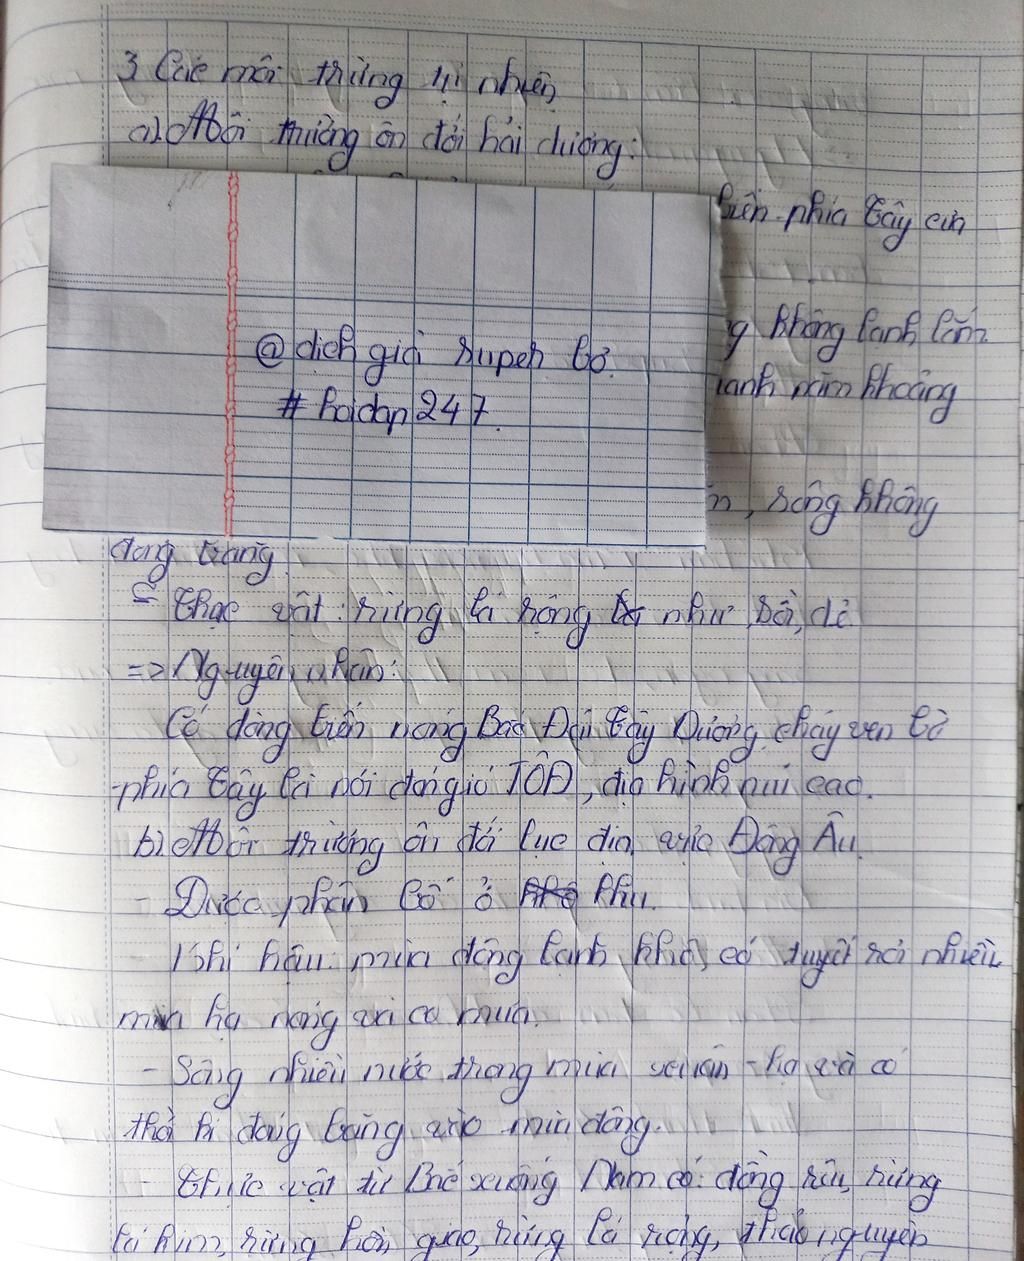 3 Các môi trường tự nhiên
a) Môi trường ôn đới hải dương:
biển phía Tây
không lạnh lắm
quanh năm khoảng
@ dịch giả super bơ.
# hoidap247.
, sông không
đóng băng
- Thực vật: rừng lá rộng như sồi, dẻ
=> Nguyên nhân:
Có dòng biển nóng Bắc Đại Tây Dương chảy ven bờ
phía Tây là nơi đón gió TÔĐ, địa hình núi cao.
b) Môi trường ôn đới lục địa, Đông Âu.
- Được phân bố ở khu.
- Khí hậu: mùa đông lạnh, khô, có tuyết rơi nhiều
mùa hạ nóng và có mưa.
- Sông nhiều nước trong mùa xuân - hạ và có
thời kì đóng băng vào mùa đông.
- Thực vật từ Bắc xuống Nam có: đồng rêu, rừng
lá kim, rừng hỗn giao, rừng lá rộng, thảo nguyên